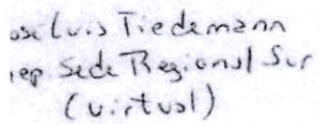 ose Luis Tiedemann
iep Sede Regional Sur
(virtual)